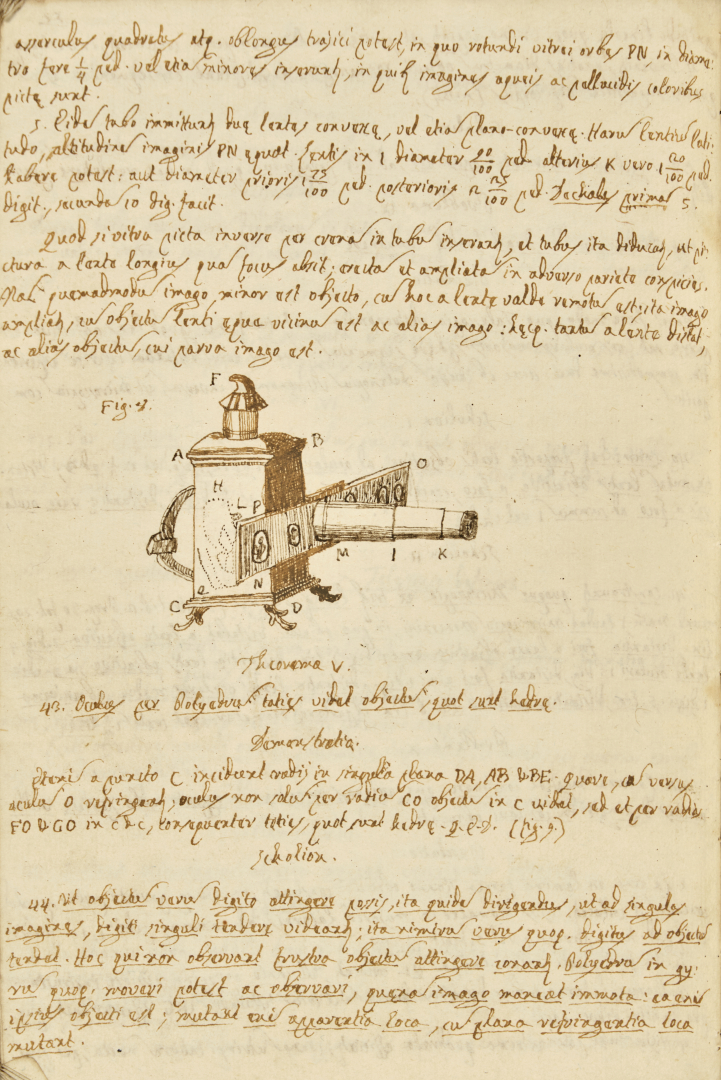 asserculus quadratus atq. oblongus trajici potest, in quo rotundi vitrei orbes PN, in diame-
tro fere 1/4 ped. vel etiã minores inserunt, in quib imagines apricis ac pellucidis coloribus
pictę sunt.
5. Eidẽ tubo immittunt duę lentes convexę, vel etiã plano-convexę. Harũ lentiũ lati-
tudo, altitudinẽ imaginis PN ęquat. Lentis in I diameter 90/100 ped. alterius K vero 1 20/100 ped.
habere potest: aut diameter prioris 1 75/100 ped. posterioris 2 25/100 ped.
digit., secunda 10 dig. facit.
Quod si vitra picta inverse per crenã in tubũ inserant, et tubus ita diducat, ut pi-
ctura a lente longius quã focus absit; erecta et ampliata in adverso pariete conspicies.
Nã quemadmodũ imago, minor est objecto, cũ hoc a lente valde remotũ est; ita imago
ampliat, cũ objectũ lenti ęque vicinũ est ac alias imago: hęcq. tantũ a lente distat,
ac alias objectũ, cui parva imago est.
Fig. 8.
F
A
B
H
O
L P
M
I
K
N
Q
C
D
Theorema V.
43. Oculus per Polyedrũ toties videt objectũ, quot sunt hedrę.
Demonstratio.
Etenim a puncto C incidunt radij in singula plana DA, AB & BE. Quare, cũ versus
oculũ O refringant; oculus non solũ per radiũ CO objectũ in C videt, sed et per radios
FO & GO in c & c, consequenter toties, quot sunt hedrę. Q. e. d. (fig. 9.)
Scholion.
44. Ut objectũ verũ digito attingere possis, ita quidẽ dirigendus, ut ad singulas
imagines, digiti singuli tendere videant; ita nimirũ verus quoq. digitus ad objectũ
tendet. Hoc qui non observant frustra objectũ attingere conant. Polyedrũ in gy-
rũ quoq. moveri potest ac observari, quęnã imago maneat immota: ea enĩ
ipsius objecti est; mutant enĩ apparentia loca, cũ plana refringentia loca
mutant.